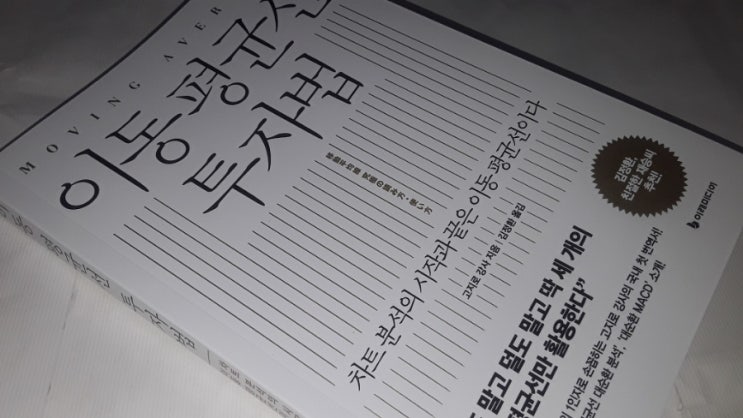 MOVING AVER
이동평균선
투자법
移動平均線 究極の読み方・使い方
차트 분석의 시작과 끝은 이동평균선이다
고지로 강사 지음 | 김정환 옮김
김정환,
친절한 재승씨
추천!
이레미디어
말고 덜도 말고 딱 세 개의
평균선만 활용한다”
1인자로 손꼽히는 고지로 강사의 국내 첫 번역서!
균선 대순환 분석’, ‘대순환 MACD’ 소개!
이동평균선 투자법